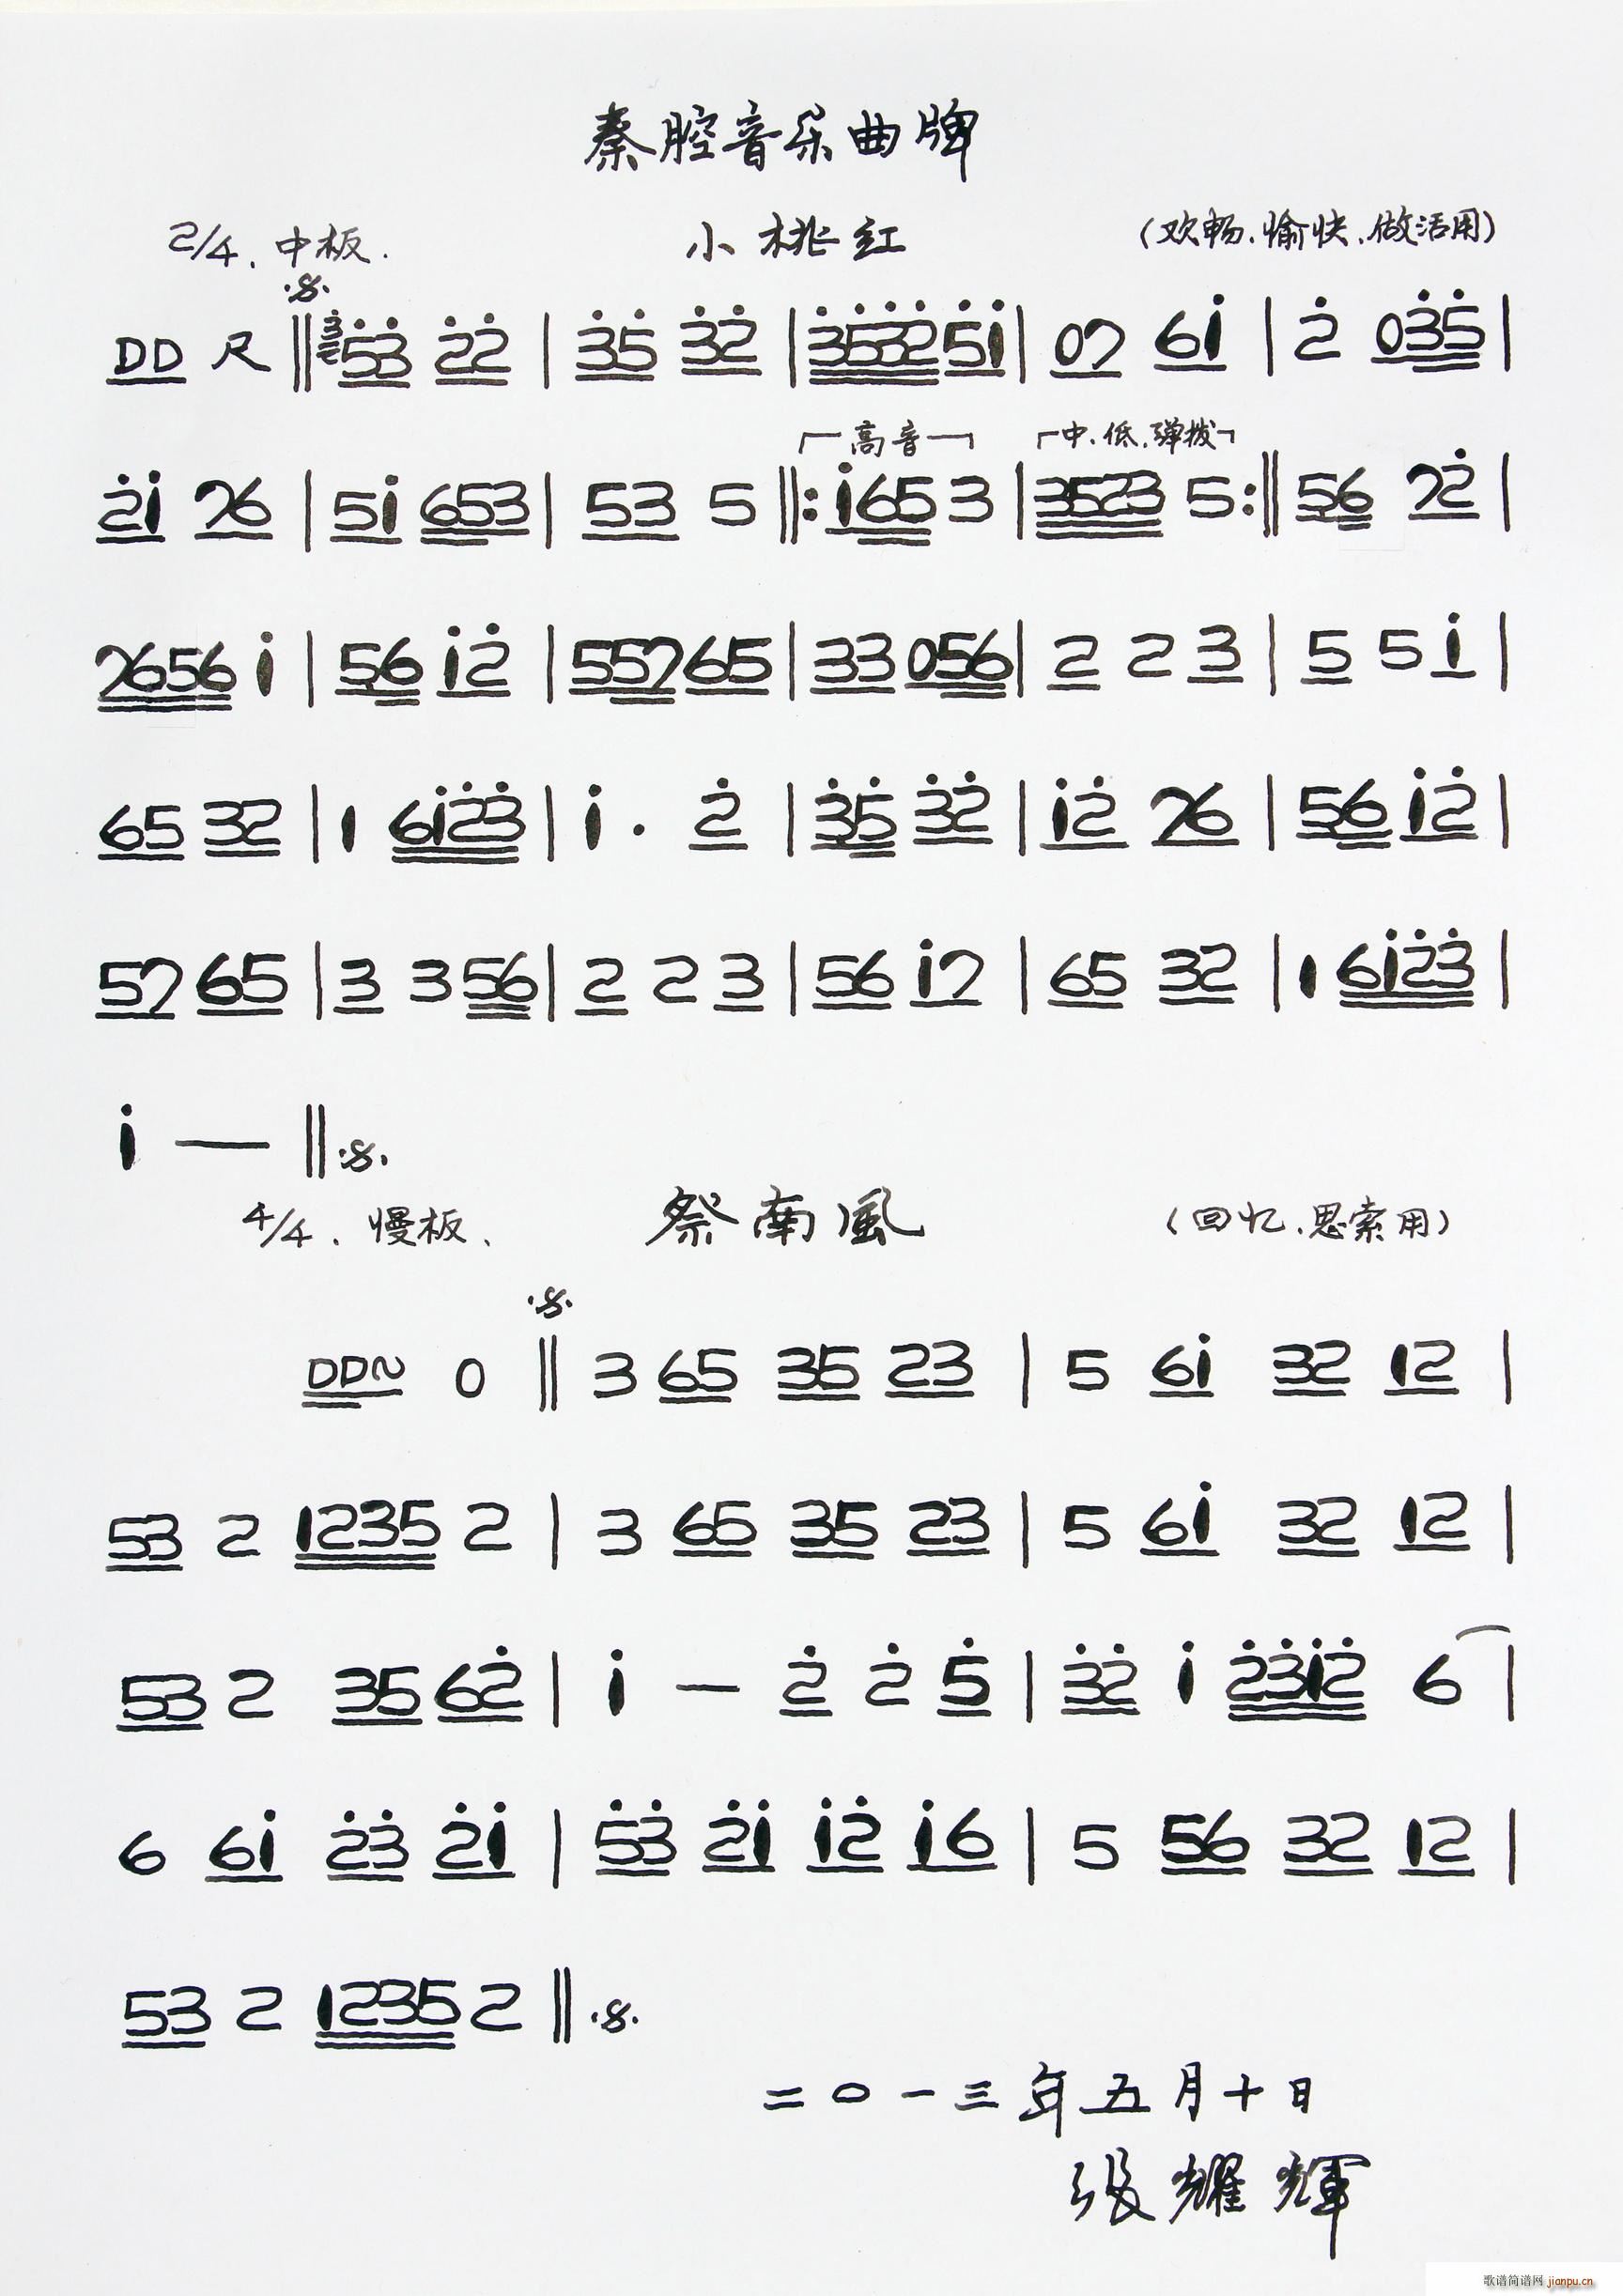 秦腔音乐曲牌
2/4. 中板. 小桃红 (欢畅.愉快.做活用)
·𝄋·
DD 尺 ‖ 5̇3̇ 2̇2̇ | 3̇5̇ 3̇2̇ | 3̇5̇3̇2̇ 5̇i | 07 6i | 2̇ 03̇5̇ |
┌高音┐ ┌中.低.弹拨┐
2̇i 76 | 5i 653 | 53 5 ‖: i65 3 | 3523 5 :‖ 56 72̇ |
7656 i | 56 i2̇ | 55765 | 33 056 | 2 2 3 | 5 5 i |
65 32 | 1 6i2̇3̇ | i · 2̇ | 3̇5̇ 3̇2̇ | i2̇ 76 | 56 i2̇ |
57 65 | 3 3 56 | 2 2 3 | 56 i7 | 65 32 | 1 6i2̇3̇ |
i — ‖ ·𝄋·
4/4. 慢板. 祭南風 (回忆.思索用)
·𝄋·
DD~ 0 ‖ 3 65 35 23 | 5 6i 32 12 |
53 2 1235 2 | 3 65 35 23 | 5 6i 32 12 |
53 2 35 62̇ | i — 2̇ 2̇ 5̇ | 3̇2̇ i 2̇3̇i2̇ 6 |
6 6i 2̇3̇ 2̇i | 5̇3̇ 2̇i i2̇ i6 | 5 56 32 12 |
53 2 1235 2 ‖ ·𝄋·
二〇一三年五月十日
张耀輝
歌谱简谱网 jianpu.cn